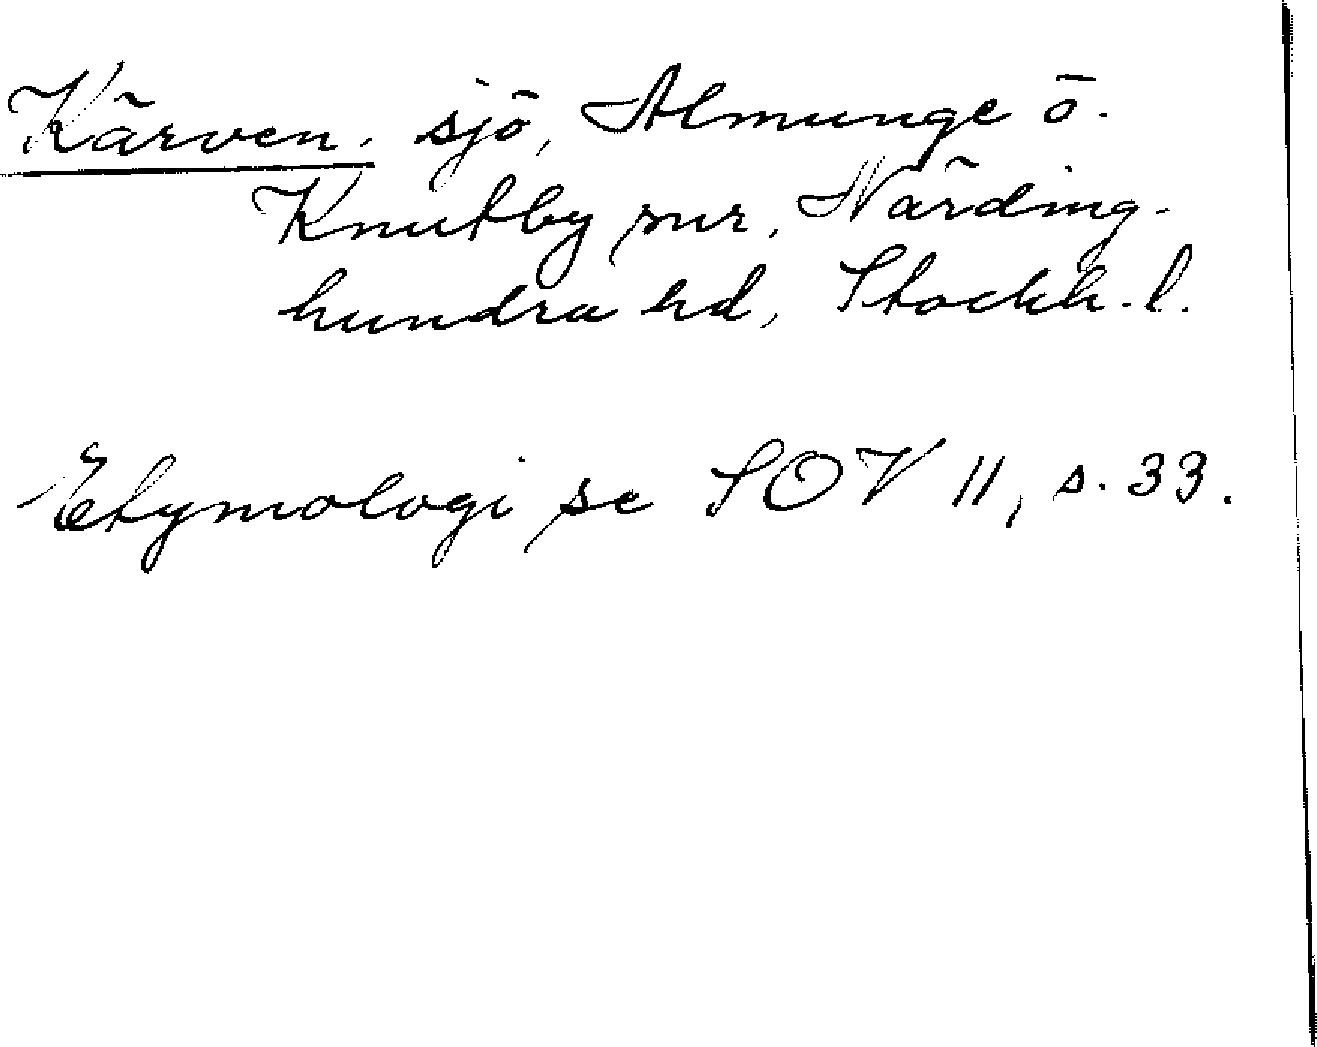 Kärven, sjö, Almunge ö.
Knutby snr, Närding-
hundra hd, Stockh. l.
Etymologi se SOV 11, s. 33.